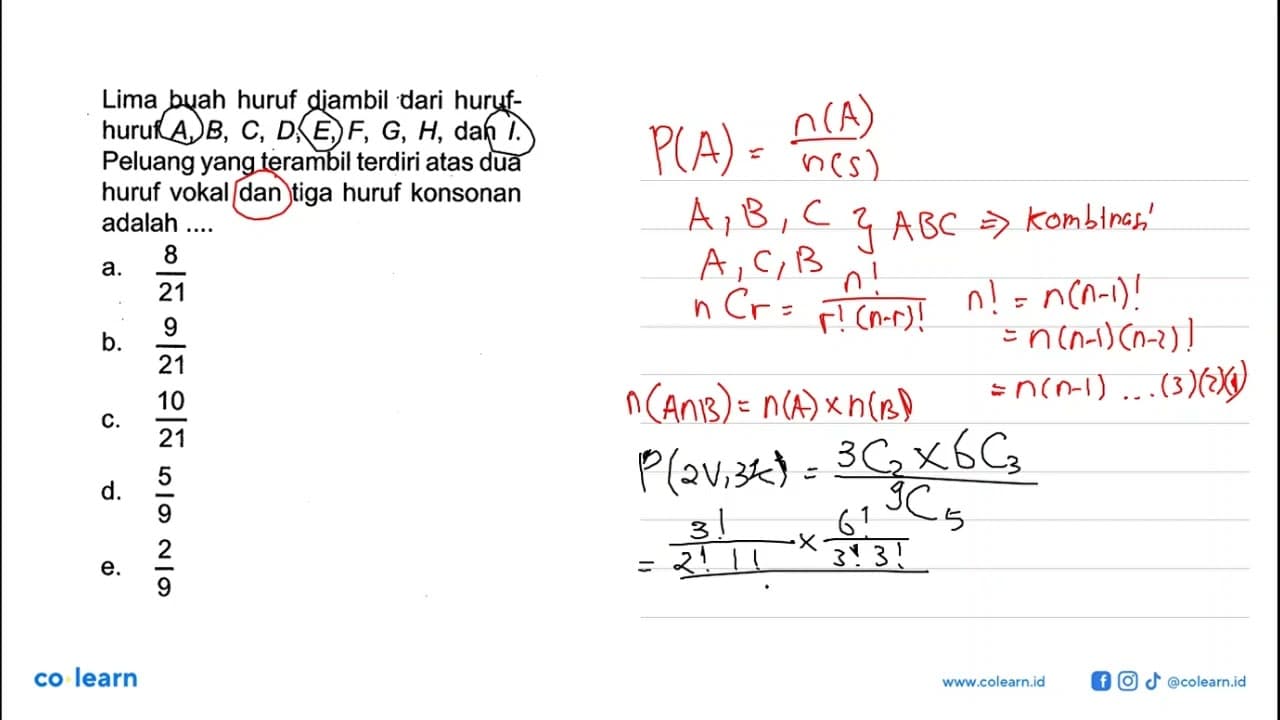 Lima buah huruf diambil dari huruf-
huruf A, B, C, D, E, F, G, H, dan I.
Peluang yang terambil terdiri atas dua
huruf vokal dan tiga huruf konsonan
adalah ....
a. 8/21
b. 9/21
c. 10/21
d. 5/9
e. 2/9
P(A) = n(A)/n(S)
A, B, C } ABC => Kombinasi
A, C, B
nCr = n!/r!(n-r)!
n! = n(n-1)!
= n(n-1)(n-2)!
= n(n-1) ...(3)(2)(1)
n(A∩B) = n(A) x n(B)
P(2V, 3K) = 3C2 x 6C3 / 9C5
= 3!/2! 1! x 6!/3! 3!
co learn
www.colearn.id
@colearn.id